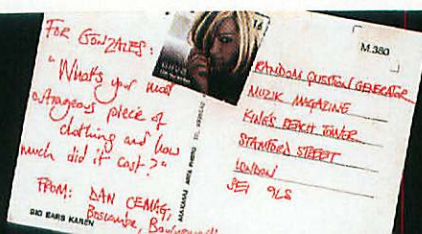 FOR GONZALES:
"What's your most
outrageous piece of
clothing and how
much did it cost?"
FROM: DAN CEMAG,
Boscombe,
BIG EARS KAREN
M.380
RANDOM QUESTION GENERATOR
MUZIK MAGAZINE
KING'S REACH TOWER
STAMFORD STREET
LONDON
SE1 9LS